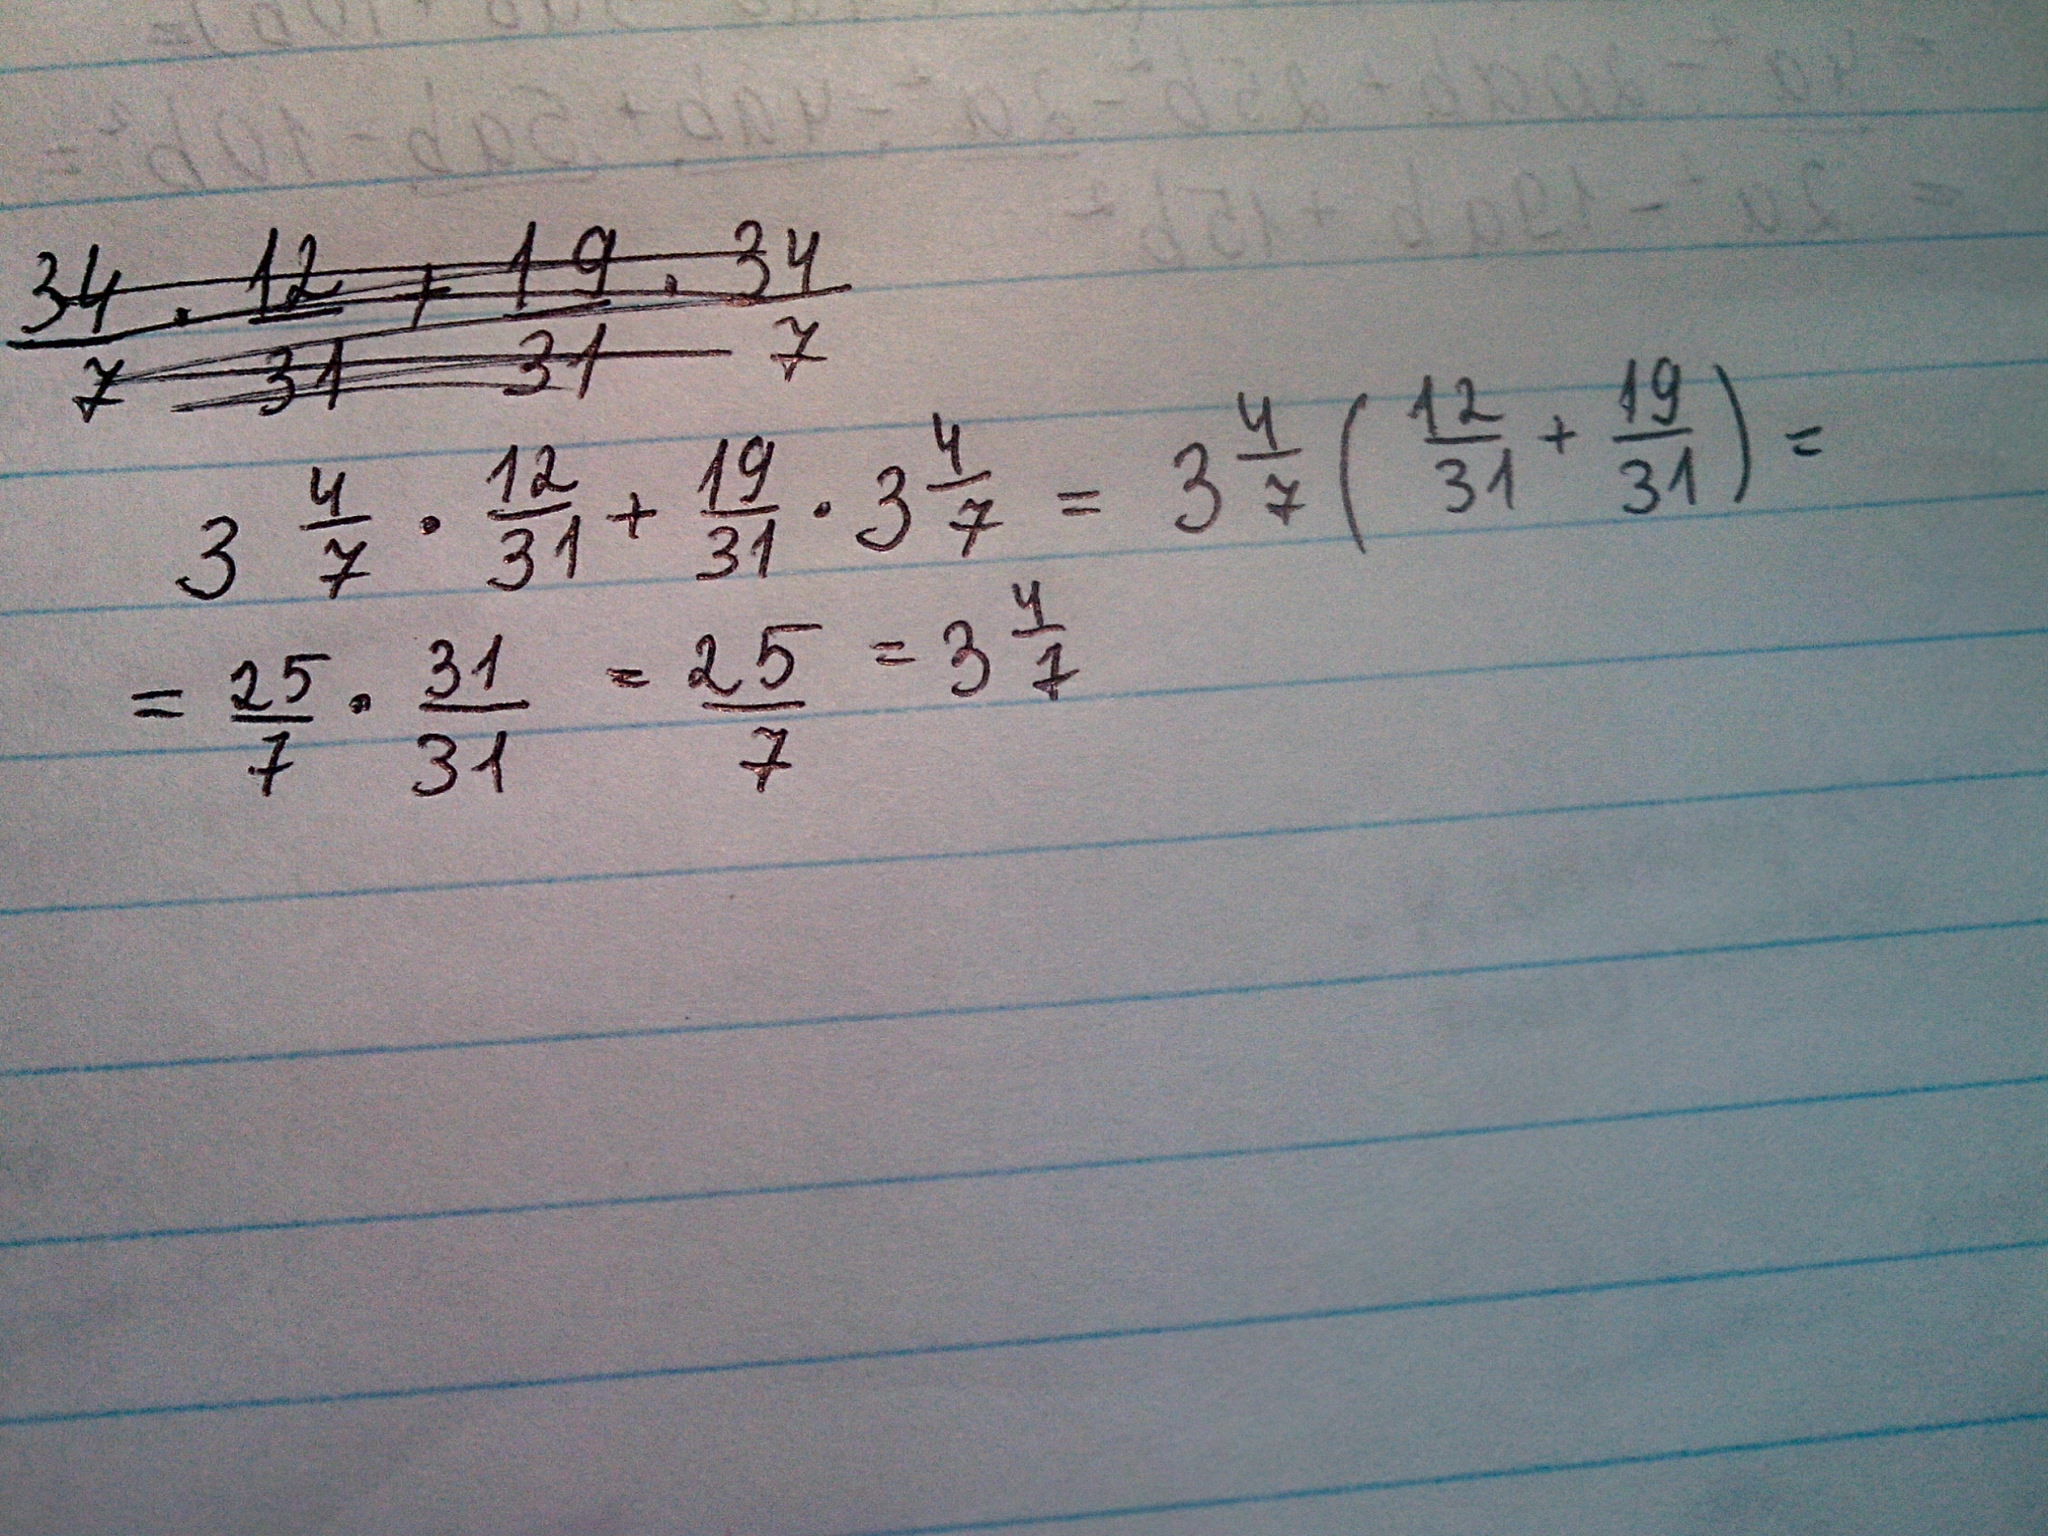 34/7 · 12/31 + 19/31 · 34/7
3 4/7 · 12/31 + 19/31 · 3 4/7 = 3 4/7 (12/31 + 19/31) =
= 25/7 · 31/31 = 25/7 = 3 4/7